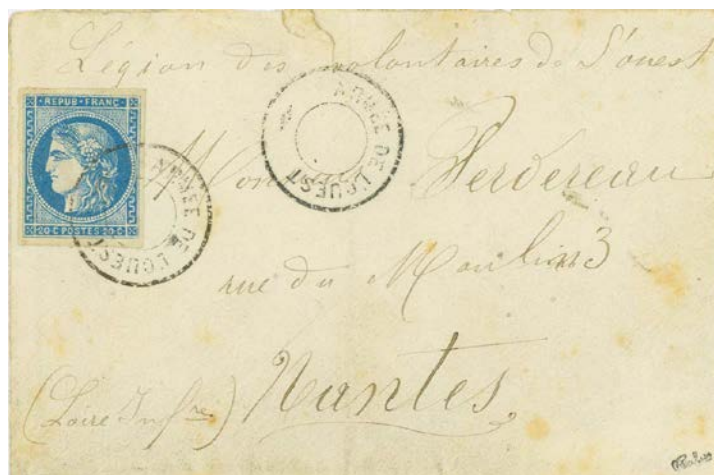 Légion des volontaires de l'ouest
REPUB · FRANC
20 C POSTES 20 C
ARMÉE DE L'OUEST
ARMÉE DE L'OUEST
Perdereau
rue du Moulin 3
Nantes
(Loire Infre)